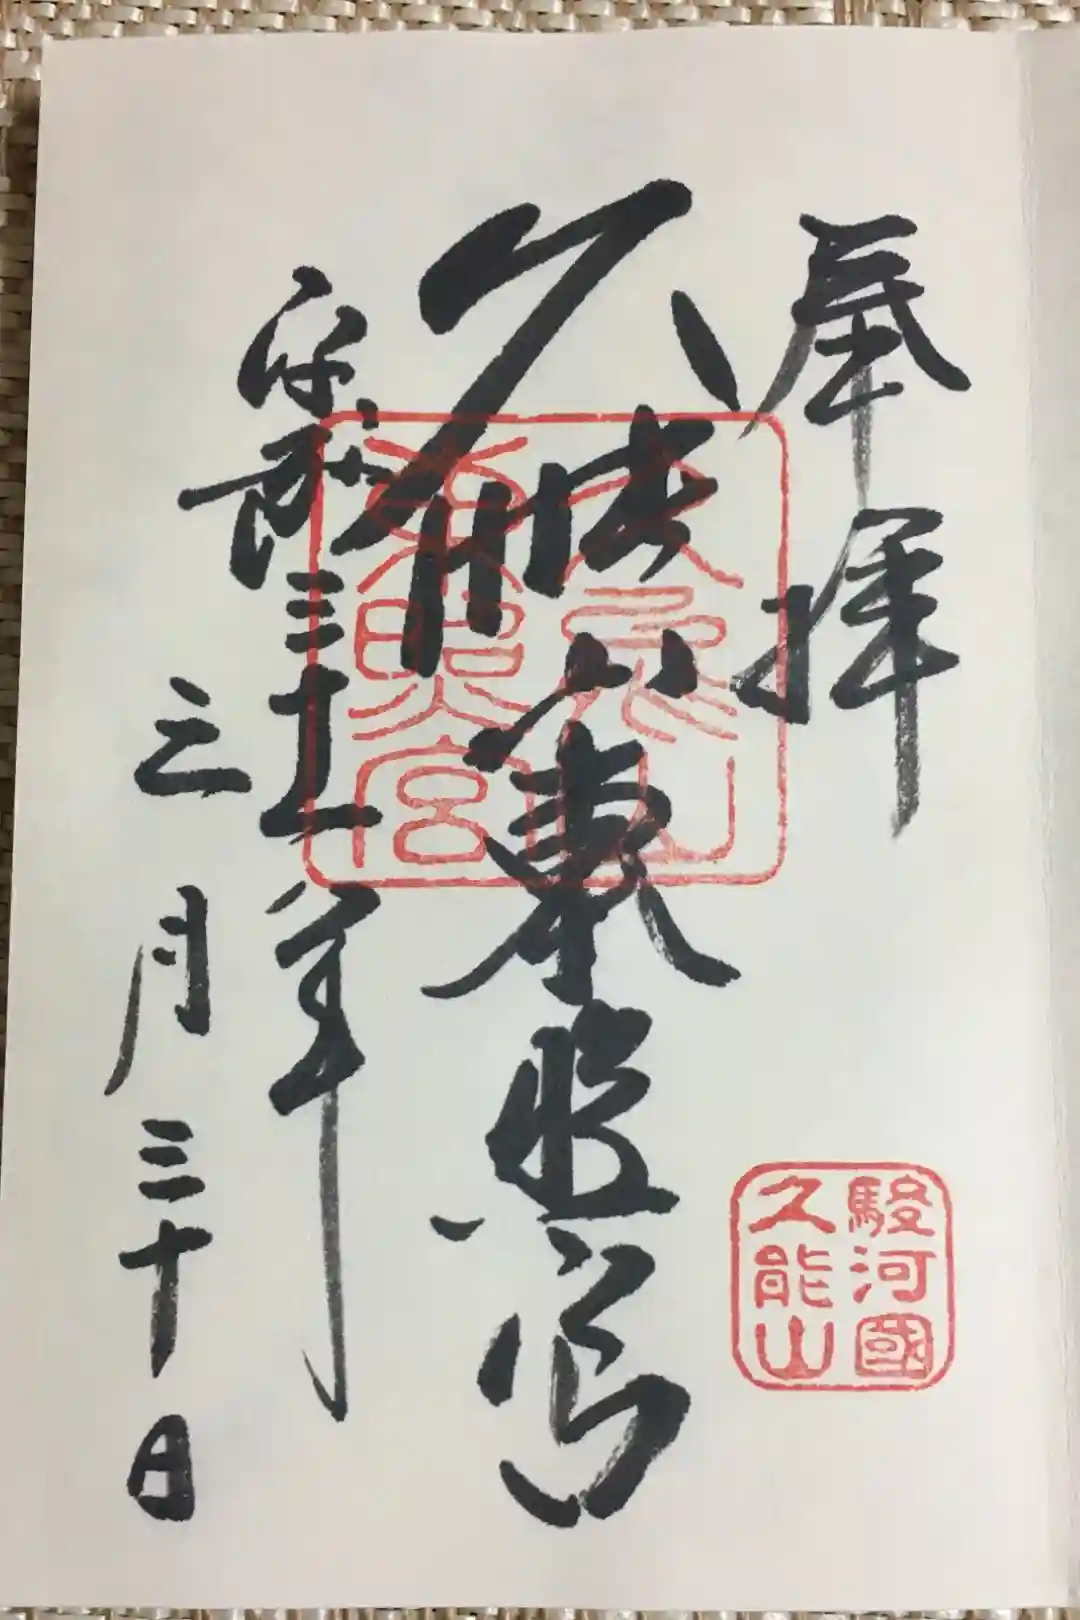 奉拝
久能山東照宮
平成三十一年
三月三十日
久能山
東照宮
駿河國
久能山